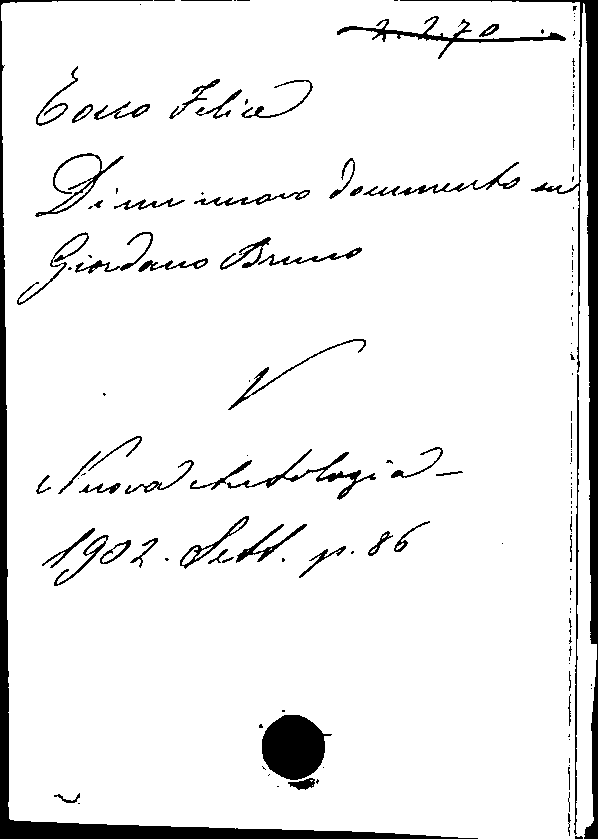 2.2.70
Tocco Felice
Di un nuovo documento su
Giordano Bruno
V
Nuova Antologia -
1902. Sett. p. 86